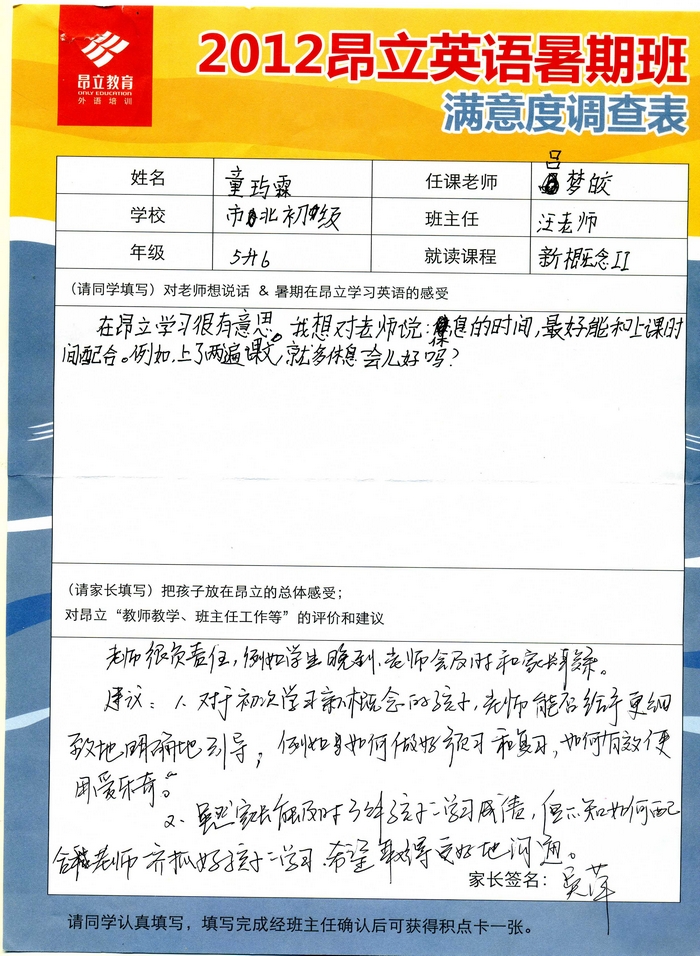 昂立教育
ONLY EDUCATION
外语培训
2012昂立英语暑期班
满意度调查表
姓名 童玙霖 任课老师 吕梦皎
学校 市北初级 班主任 汪老师
年级 5升6 就读课程 新概念II
(请同学填写)对老师想说话 & 暑期在昂立学习英语的感受
在昂立学习很有意思。我想对老师说:休息的时间,最好能和上课时
间配合。例如,上了两遍课文,就多休息会儿好吗?
(请家长填写)把孩子放在昂立的总体感受;
对昂立“教师教学、班主任工作等”的评价和建议
老师很负责任,例如学生晚到,老师会及时和家长联系。
建议:1、对于初次学习新概念的孩子,老师能否给予更细
致地明确地引导;例如如何做好预习和复习,如何有效使
用爱乐奇。
2、虽然家长能及时了解孩子学习成绩,但不知如何配
合老师齐抓好孩子学习,希望取得更好地沟通。
家长签名:吴萍
请同学认真填写,填写完成经班主任确认后可获得积点卡一张。